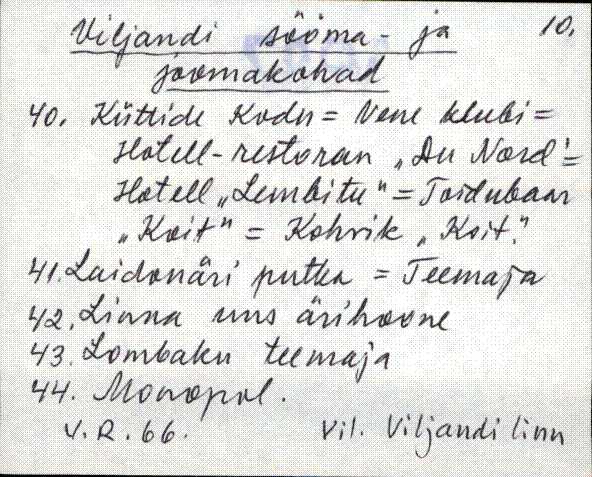 10.
Viljandi sööma- ja
joomakohad
40. Küttide Kodu = Vene klubi =
Hotell-restoran „Du Nord" =
Hotell „Lembitu" = Toidubaar
„Koit" = Kohvik „Koit."
41. Laidonäri putka = Teemaja
42. Linna uus ärihoone
43. Lombaku teemaja
44. Monopol.
V.R. 66. Vil. Viljandi linn